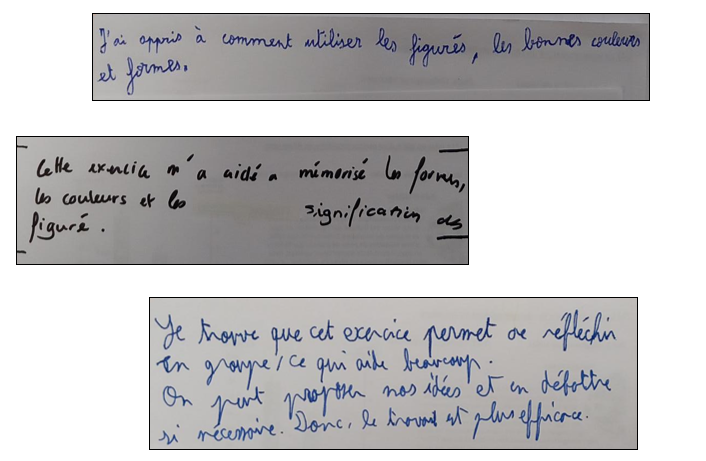 J'ai appris à comment utiliser les figurés, les bonnes couleurs
et formes.
Cette exercice m'a aidé a mémorisé les formes,
les couleurs et les signification des
figuré.
Je trouve que cet exercice permet de réfléchir
en groupe, ce qui aide beaucoup.
On peut proposer nos idées et en débattre
si nécessaire. Donc, le travail est plus efficace.